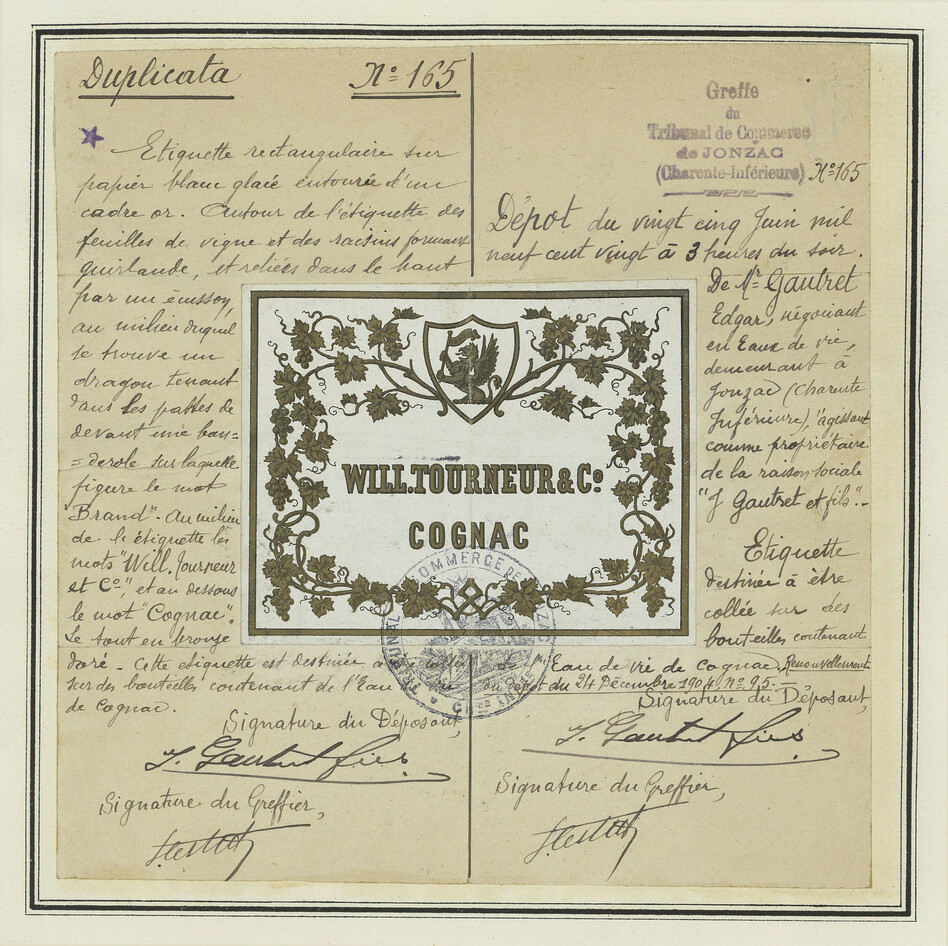 Duplicata
Nº 165
Etiquette rectangulaire sur
papier blanc glacé entourée d'un
cadre or. Autour de l'étiquette des
feuilles de vigne et des raisins formant
guirlande, et reliées dans le haut
par un écusson,
au milieu duquel
se trouve un
dragon tenant
dans les pattes de
devant une ban=
=derole sur laquelle
figure le mot
"Brand". Au milieu
de l'étiquette les
mots "Will. Tourneur
et Co", et au dessous
le mot "Cognac".
Le tout en bronze
doré - Cette etiquette est destinée a
sur des bouteilles contenant de l'Eau
de Cognac.
Signature du Déposant,
J. Gautret fils
Signature du Greffier,
WILL.TOURNEUR & Cº
COGNAC
TRIBUNAL COMMERCE DE JONZAC
Greffe
du
Tribunal de Commerce
de JONZAC
(Charente-Inférieure) Nº 165
Dépot du vingt cinq Juin mil
neuf cent vingt à 3 heures du soir.
De Mr Gautret
Edgar, négociant
en Eaux de vie,
demeurant à
Jonzac (Charente
Inférieure), agissant
comme propriétaire
de la raison sociale
"J Gautret et fils".-
Etiquette
destinée à être
collée sur des
bouteilles contenant
de l'Eau de vie de cognac. Renouvellement
du dépot du 24 Décembre 1904 nº 95.-
Signature du Déposant,
J. Gautret fils
Signature du Greffier,